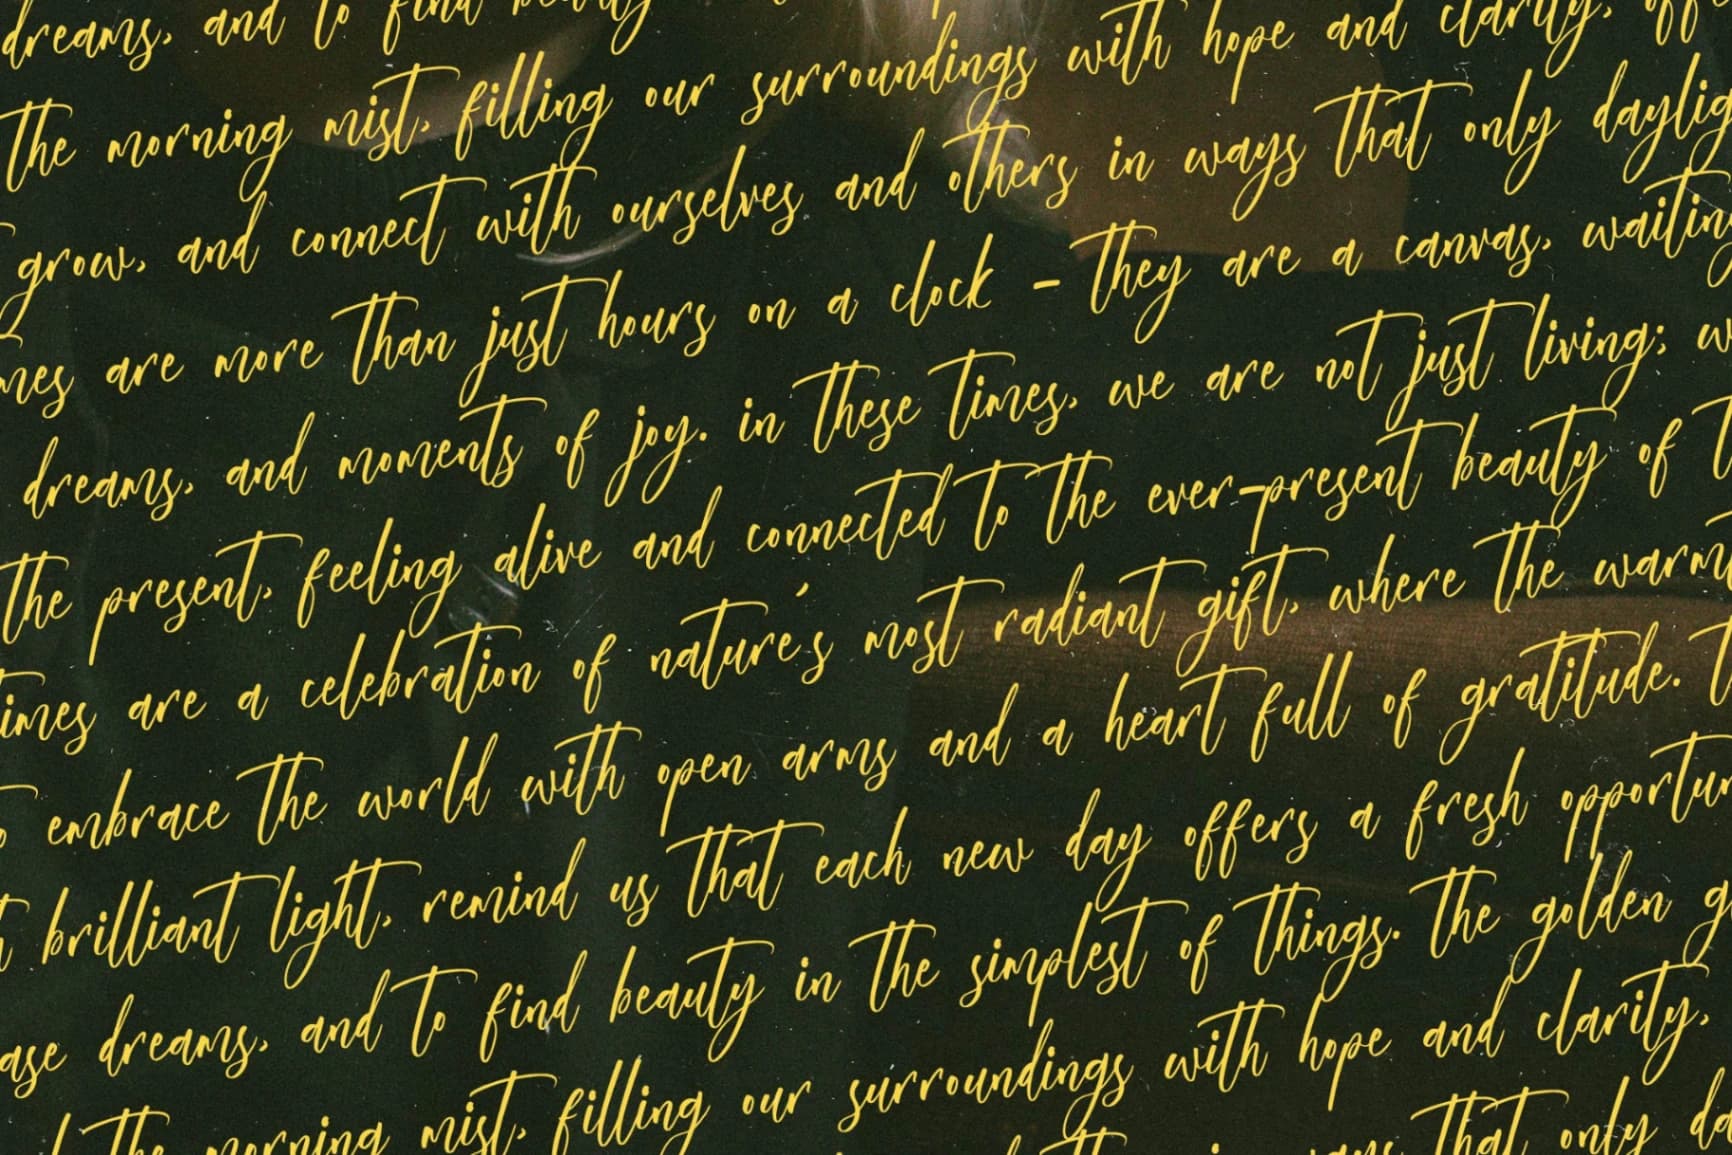 dreams, and to find beauty
the morning mist, filling our surroundings with hope and clarity,
grow, and connect with ourselves and others in ways that only
are more than just hours on a clock - they are a canvas, waiting
dreams, and moments of joy. in these times, we are not just living;
the present, feeling alive and connected to the ever-present beauty of
times are a celebration of nature's most radiant gift, where the
embrace the world with open arms and a heart full of gratitude.
brilliant light, remind us that each new day offers a fresh
dreams, and to find beauty in the simplest of things. the golden
the morning mist, filling our surroundings with hope and clarity,
that only